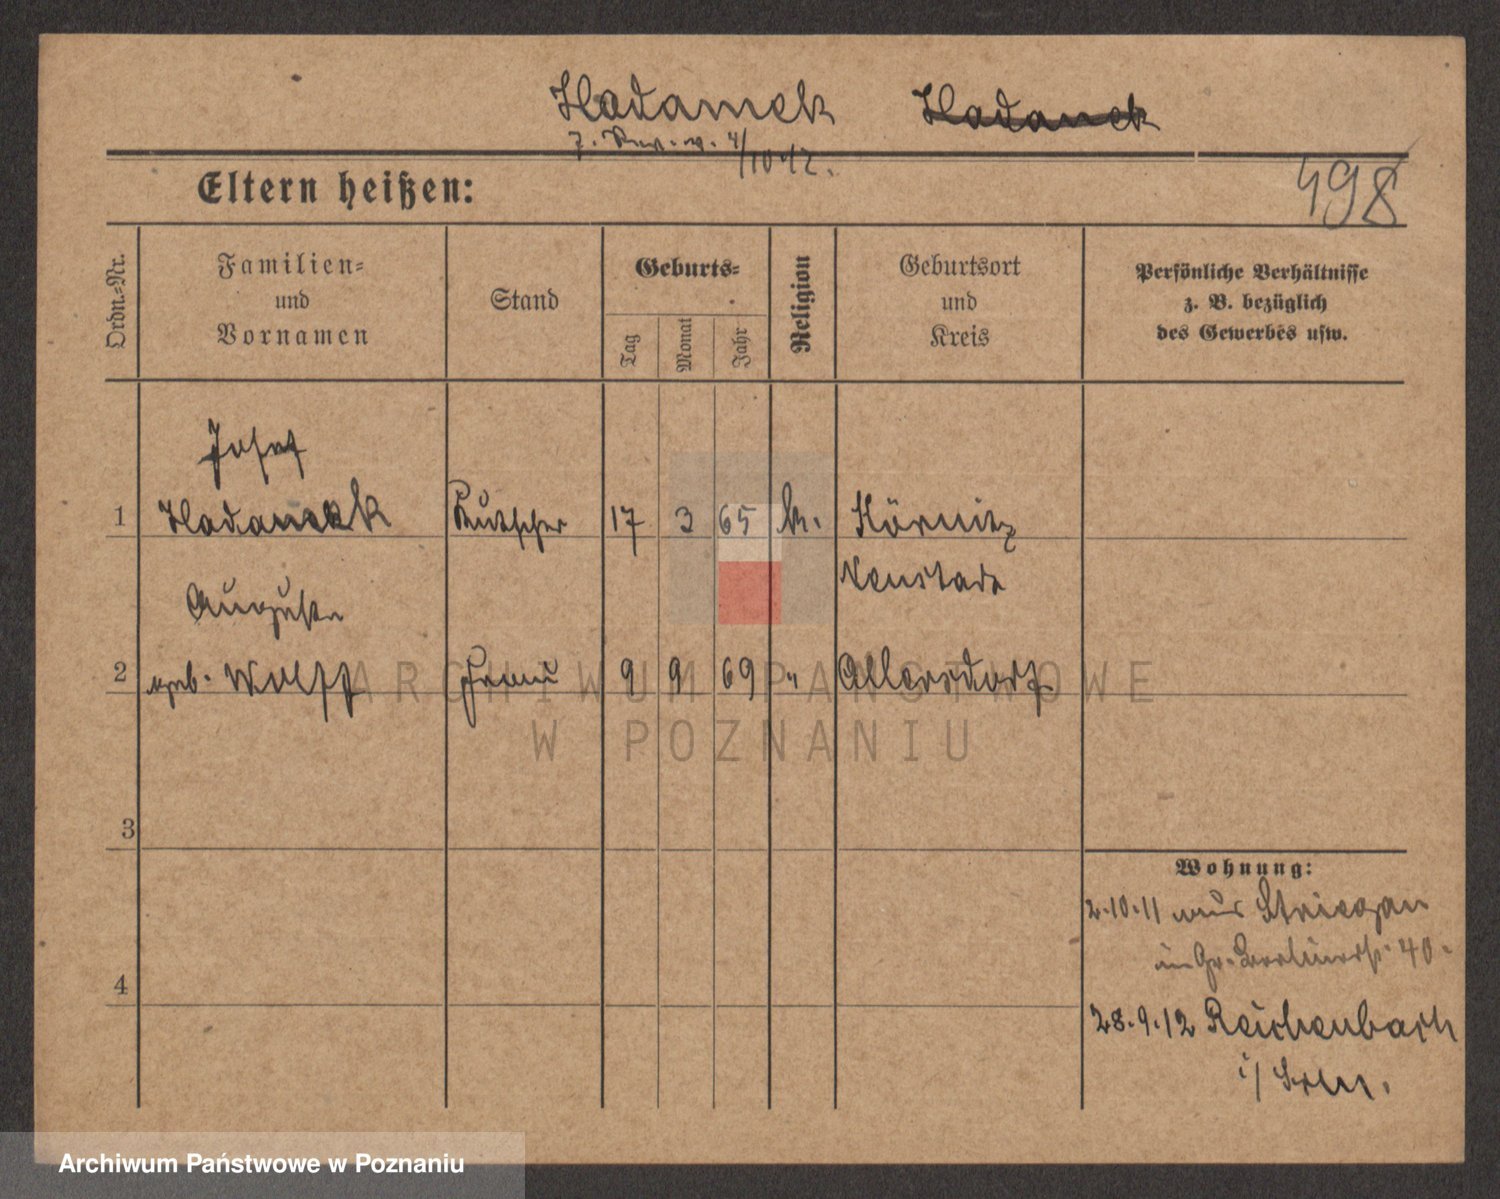 Hadamek Hadanek
z. Rev. v. 4/10.12.
Eltern heißen:
498
Ordn.-Nr.
Familien-
und
Vornamen
Stand
Geburts-
Tag
Monat
Jahr
Religion
Geburtsort
und
Kreis
Persönliche Verhältnisse
z. B. bezüglich
des Gewerbes usw.
Josef
1 Hadamek Kutscher 17 3 65 k. Körnitz
Neustadt
Auguste
2 geb. Wolff Frau 9 9 69 " Ollersdorf
3
4
Wohnung:
2.10.11 aus Striegau
in Gr. Berlinerstr. 40.
28.9.12 Reichenbach
i/ Schles.
ARCHIWUM PAŃSTWOWE
W POZNANIU
Archiwum Państwowe w Poznaniu